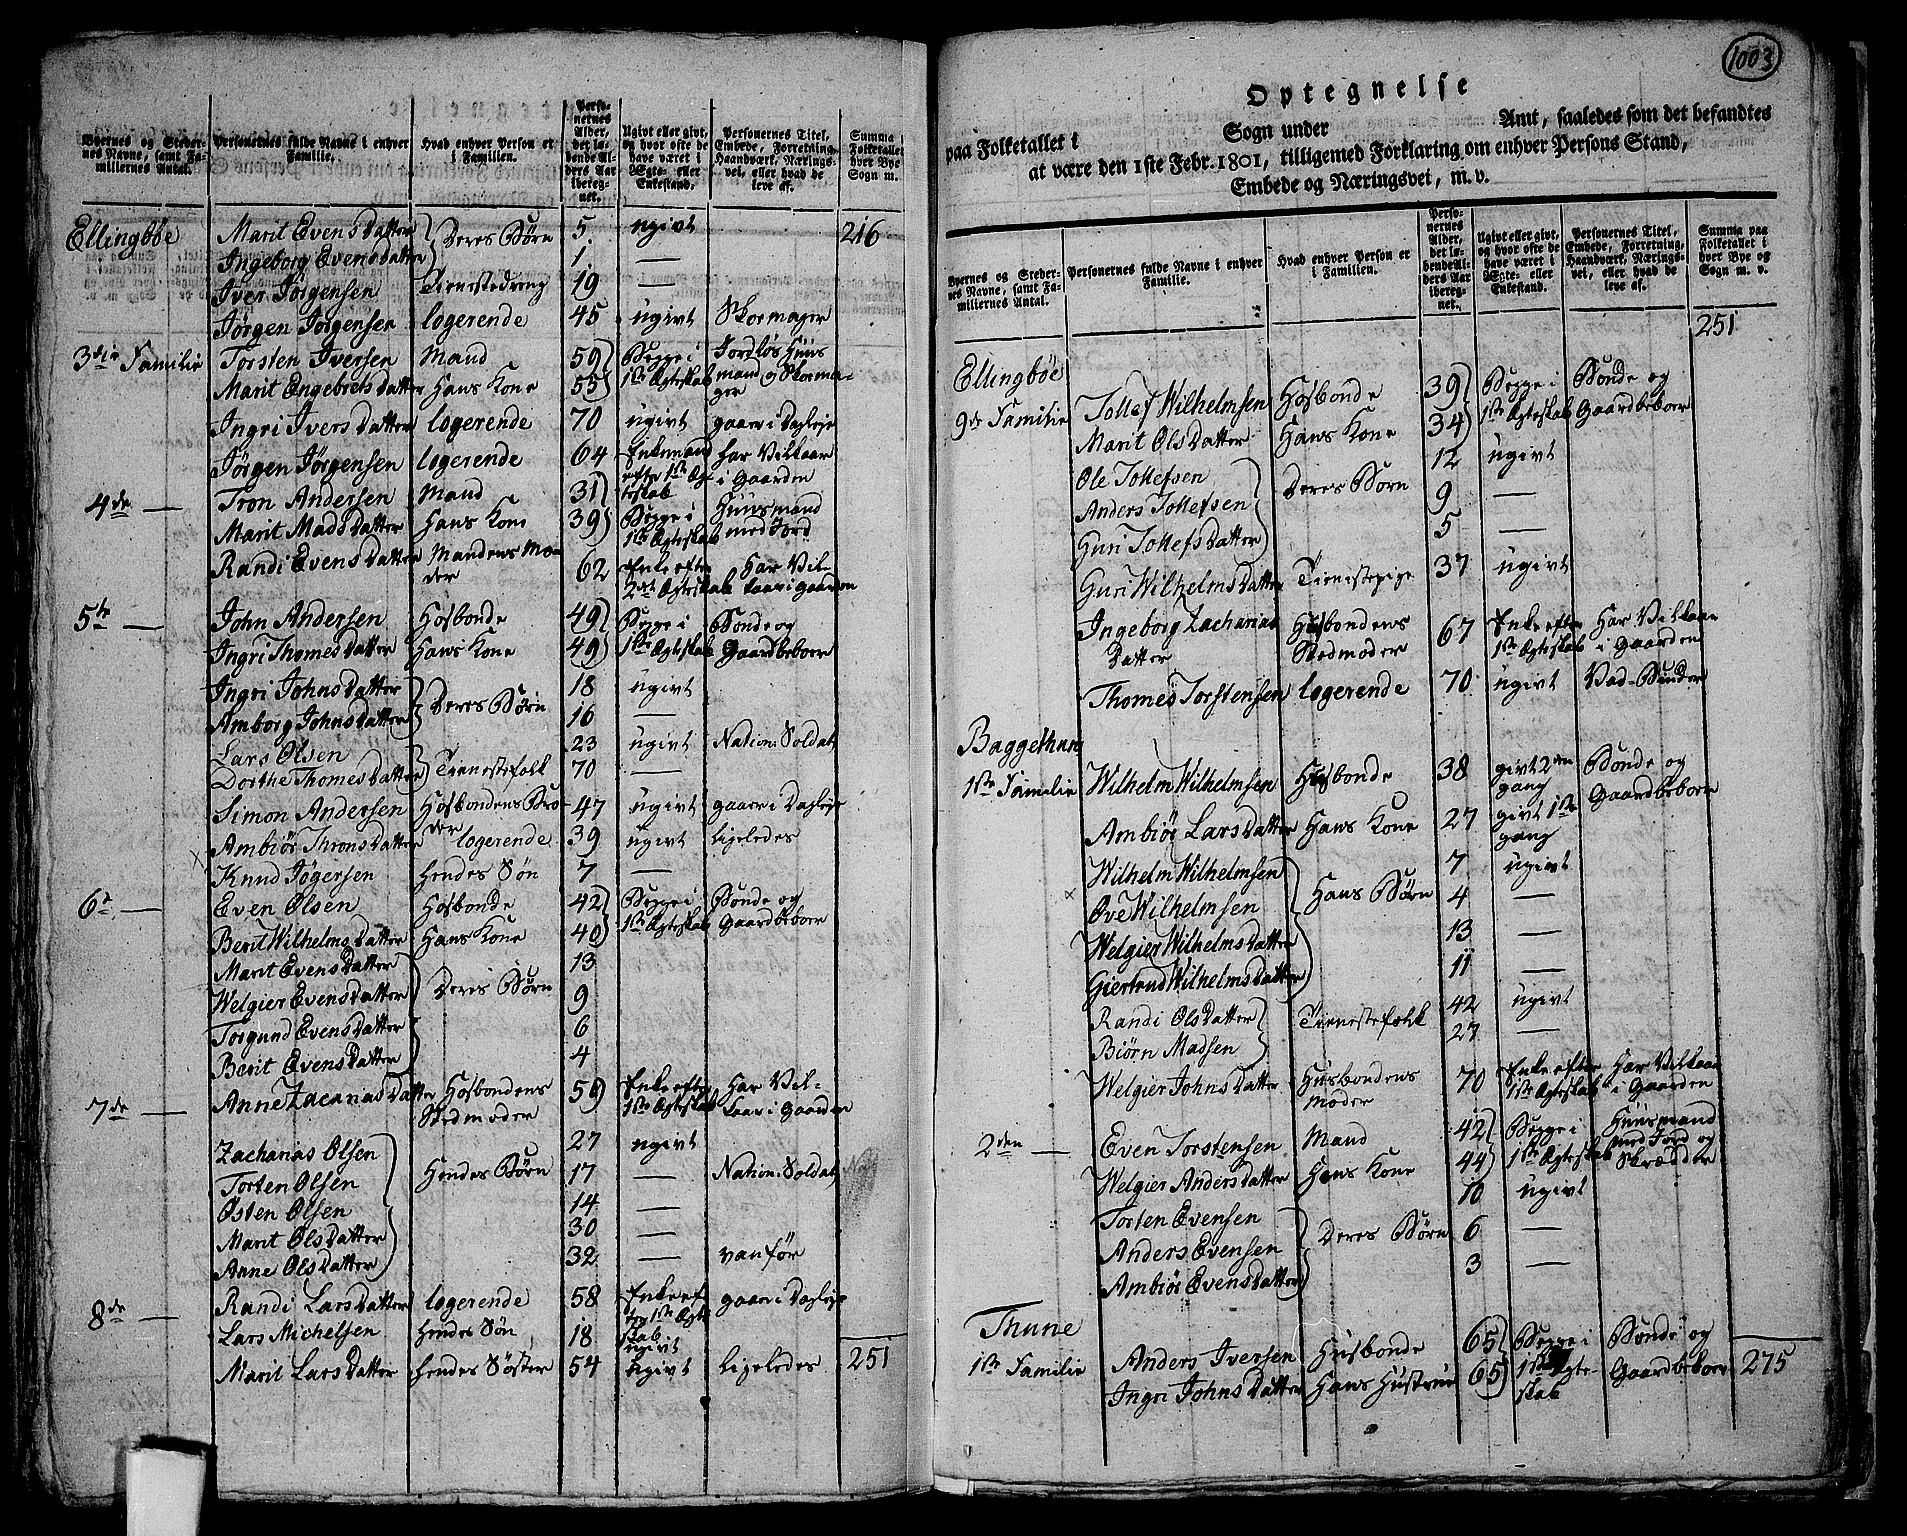 Byernes og Stedernes Navne, samt Familiernes Antal. | Personernes fulde Navne i enhver Familie. | Hvad enhver Person er i Familien. | Personernes Alder, det løbende Alders Aar iberegnet. | Ugivt eller givt, og hvor ofte de have været i Ægte- eller Enkestand. | Personernes Titel, Embede, Forretning, Haandværk, Næringsvei, eller hvad de leve af. | Summa Folketallet hver Bye Sogn m.
Ellingbøe | Marit Evens Datter | Deres Børn | 5. | ugivt | 216
Ingeborg Evensdatter | 1. | —
Iver Jørgensen | Tienestedreng | 19 | —
Jørgen Jørgensen | logerende | 45 | ugivt | Skormager
3die Familie | Torsten Iversen | Mand | 59 | Begge i | Jordløs Huus
Marit Engebrets datter | Hans Kone | 55 | 1ste Ægteskab | mand og Skormager
Ingri Ivers Datter | logerende | 70 | ugivt | gaar i Dagleje
Jørgen Jørgensen | logerende | 64 | Enkemand efter 1ste Ægteskab | har Vilkaar i Gaarden
4de — | Tron Andersen | Mand | 31 | Begge i | Huusmand
Marit Mads Datter | Hans Kone | 39 | 1ste Ægteskab | med Jord
Randi Evens Datter | Mandens Moder | 62 | Enke efter 2det Ægteskab | Har Vilkaar i Gaarden
5te — | John Andersen | Hosbonde | 49 | Begge i | Bonde og
Ingri Thomes Datter | Hans Kone | 49 | 1ste Ægteskab | Gaardbeboer
Ingri Johns Datter | Deres Børn | 18 | ugivt
Amborg Johns datter | 16 | —
Lars Olsen | Tienestefolk | 23 | ugivt | Nation: Soldat
Dorthe Thomes Datter | 70 | —
Simon Andersen | Hosbondens Broder | 47 | ugivt | gaar i Dagleje
Ambiør Throns Datter | logerende | 39 | ugivt | ligeledes
Knud Jøgersen | Hendes Søn | 7 | —
6te — | Even Olsen | Hosbonde | 42 | Begge i | Bonde og
Berit Wilhelms Datter | Hans Kone | 40 | 1ste Ægteskab | Gaardbeboer
Marit Evens Datter | Deres Børn | 13
Welgier Evensdatter | 9
Torgund Evens Datter | 6
Berit Evens Datter | 4
7de — | Anne Zacarias Datter | Hosbondens Stedmoder | 59 | Enke efter 1ste Ægteskab | Har Vilkaar i Gaarden
Zacharias Olsen | Hendes Børn | 27 | ugivt
Torten Olsen | 17 | — | Nation: Soldat
Østen Olsen | 14 | —
Marit Ols Datter | 30 | —
Anne Ols Datter | 32 | — | vanfør
8de — | Randi Lars Datter | logerende | 58 | Enke efter 1ste Ægteskab | gaar i Dagleje
Lars Michelsen | Hendes Søn | 18 | ugivt
Marit Lars Datter | Hendes Søster | 54 | ugivt | ligeledes | 251
1003
Optegnelse
paa Folketallet i Sogn under Amt, saaledes som det befandtes
at være den 1ste Febr. 1801, tilligemed Forklaring om enhver Persons Stand,
Embede og Næringsvei, m. v.
Byernes og Stedernes Navne, samt Familiernes Antal. | Personernes fulde Navne i enhver Familie. | Hvad enhver Person er i Familien. | Personernes Alder, det løbende Alders Aar iberegnet. | Ugivt eller givt, og hvor ofte de have været i Ægte- eller Enkestand. | Personernes Titel, Embede, Forretning, Haandværk, Næringsvei, eller hvad de leve af. | Summa paa Folketallet i hver Bye og Sogn m. v.
251
Ellingbøe
9de Familie | Tollef Wilhelmsen | Hosbonde | 39 | Begge i | Bonde og
Marit Ols Datter | Hans Kone | 34 | 1ste Ægteskab | Gaardbeboer
Ole Tollefsen | Deres Børn | 12 | ugivt
Anders Tollefsen | 9 | —
Guri Tollefs Datter | 5 | —
Guri Wilhelms Datter | Tienestepige | 37 | ugivt
Ingeborg Zacharias Datter | Husbondens Stedmoder | 67 | Enke efter 1ste Ægteskab | Har Vilkaar i Gaarden
Thomes Torstensen | logerende | 70 | ugivt | Vad-Binder
Baggethun
1ste Familie | Wilhelm Wilhelmsen | Husbonde | 38 | givt 2den gang | Bonde og Gaardbeboer
Ambiør Lars Datter | Hans Kone | 27 | givt 1ste gang
Wilhelm Wilhelmsen | Hans Børn | 7 | ugivt
Ove Wilhelmsen | 4 | —
Welgier Wilhelms Datter | 13 | —
Giertrud Wilhelms Datter | 11 | —
Randi Ols Datter | Tienestefolk | 42 | ugivt
Biørn Madsen | 27 | —
Welgier Johns Datter | Husbondens Moder | 70 | Enke efter 1ste Ægteskab | Har Vilkaar i Gaarden
2den — | Even Torstensen | Mand | 42 | Begge i | Huusmand med Jord og
Welgier Anders Datter | Hans Kone | 44 | 1ste Ægteskab | Skrædder
Torten Evensen | Deres Børn | 10 | ugivt
Anders Evensen | 6 | —
Ambiør Evens Datter | 3 | —
Thune
1ste Familie | Anders Iversen | Husbonde | 65 | Begge i | Bonde og
Ingri Johns Datter | Hans Hustrue | 65 | 1ste Ægteskab | Gaardbeboer | 275